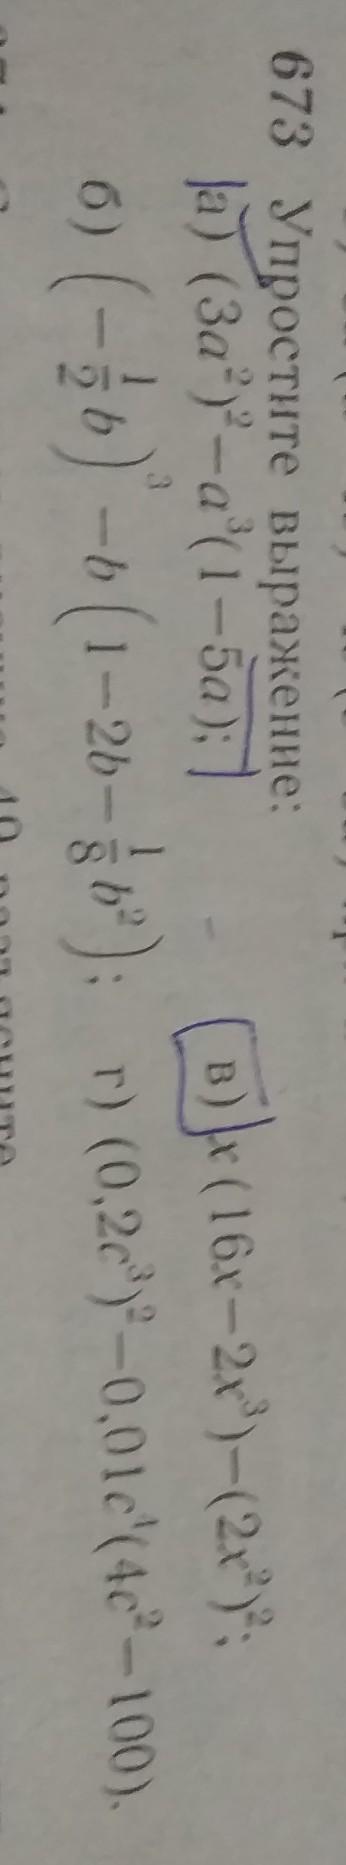 673 Упростите выражение:
а) (3a²)² − a³(1 − 5a); в) x(16x − 2x³) − (2x²)²;
б) (− 1/2 b)³ − b(1 − 2b − 1/8 b²); г) (0,2c³)² − 0,01c⁴(4c² − 100).